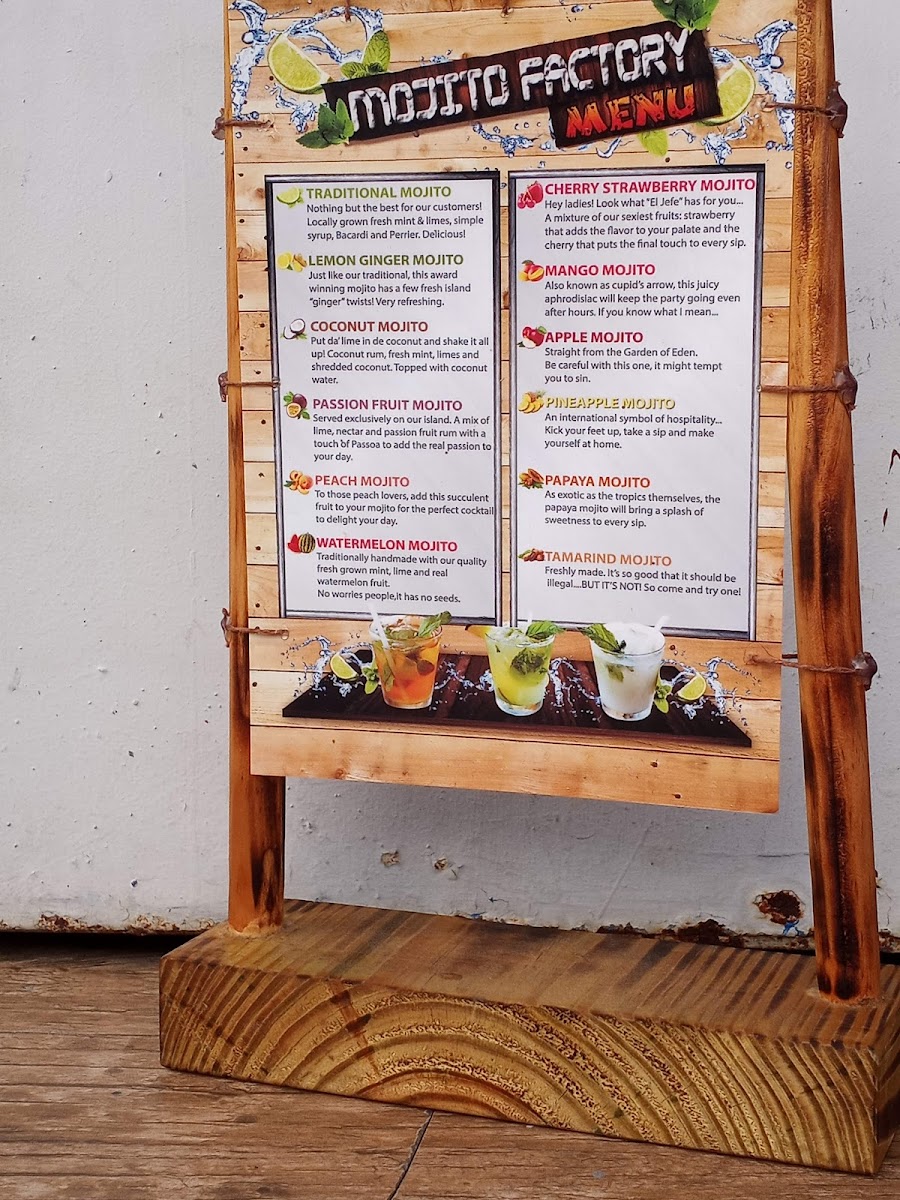 MOJITO FACTORY
MENU
TRADITIONAL MOJITO
Nothing but the best for our customers!
Locally grown fresh mint & limes, simple
syrup, Bacardi and Perrier. Delicious!
LEMON GINGER MOJITO
Just like our traditional, this award
winning mojito has a few fresh island
"ginger" twists! Very refreshing.
COCONUT MOJITO
Put da' lime in de coconut and shake it all
up! Coconut rum, fresh mint, limes and
shredded coconut. Topped with coconut
water.
PASSION FRUIT MOJITO
Served exclusively on our island. A mix of
lime, nectar and passion fruit rum with a
touch of Passoa to add the real passion to
your day.
PEACH MOJITO
To those peach lovers, add this succulent
fruit to your mojito for the perfect cocktail
to delight your day.
WATERMELON MOJITO
Traditionally handmade with our quality
fresh grown mint, lime and real
watermelon fruit.
No worries people,it has no seeds.
CHERRY STRAWBERRY MOJITO
Hey ladies! Look what "El Jefe" has for you...
A mixture of our sexiest fruits: strawberry
that adds the flavor to your palate and the
cherry that puts the final touch to every sip.
MANGO MOJITO
Also known as cupid's arrow, this juicy
aphrodisiac will keep the party going even
after hours. If you know what I mean...
APPLE MOJITO
Straight from the Garden of Eden.
Be careful with this one, it might tempt
you to sin.
PINEAPPLE MOJITO
An international symbol of hospitality...
Kick your feet up, take a sip and make
yourself at home.
PAPAYA MOJITO
As exotic as the tropics themselves, the
papaya mojito will bring a splash of
sweetness to every sip.
TAMARIND MOJITO
Freshly made. It's so good that it should be
illegal....BUT IT'S NOT! So come and try one!